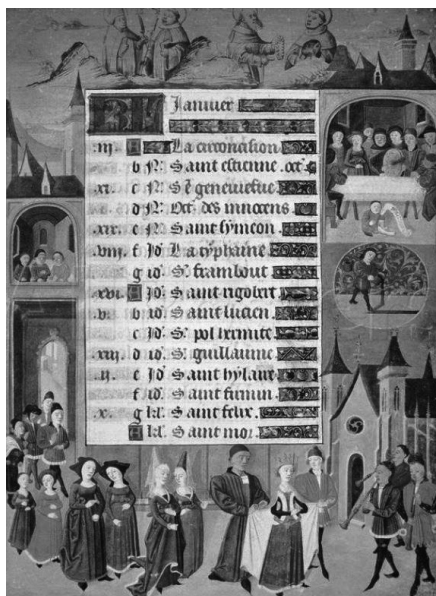 Janvier
.iij. A La circoncision
b N: Saint estienne oct
.xi. c N: Ste geneviefve
d N: Oct. des innocens
.xix. e N: Saint symeon
.viij. f Id La typhaine
g id St frambout
.xvi. A Id Saint rigobert
.v. b id Saint lucien
c Id St pol hermite
.xiij. d id St guillaume
.ij. e Id Saint hylaire
f id Saint firmin
.x. g kl Saint felix
A kl Saint mor